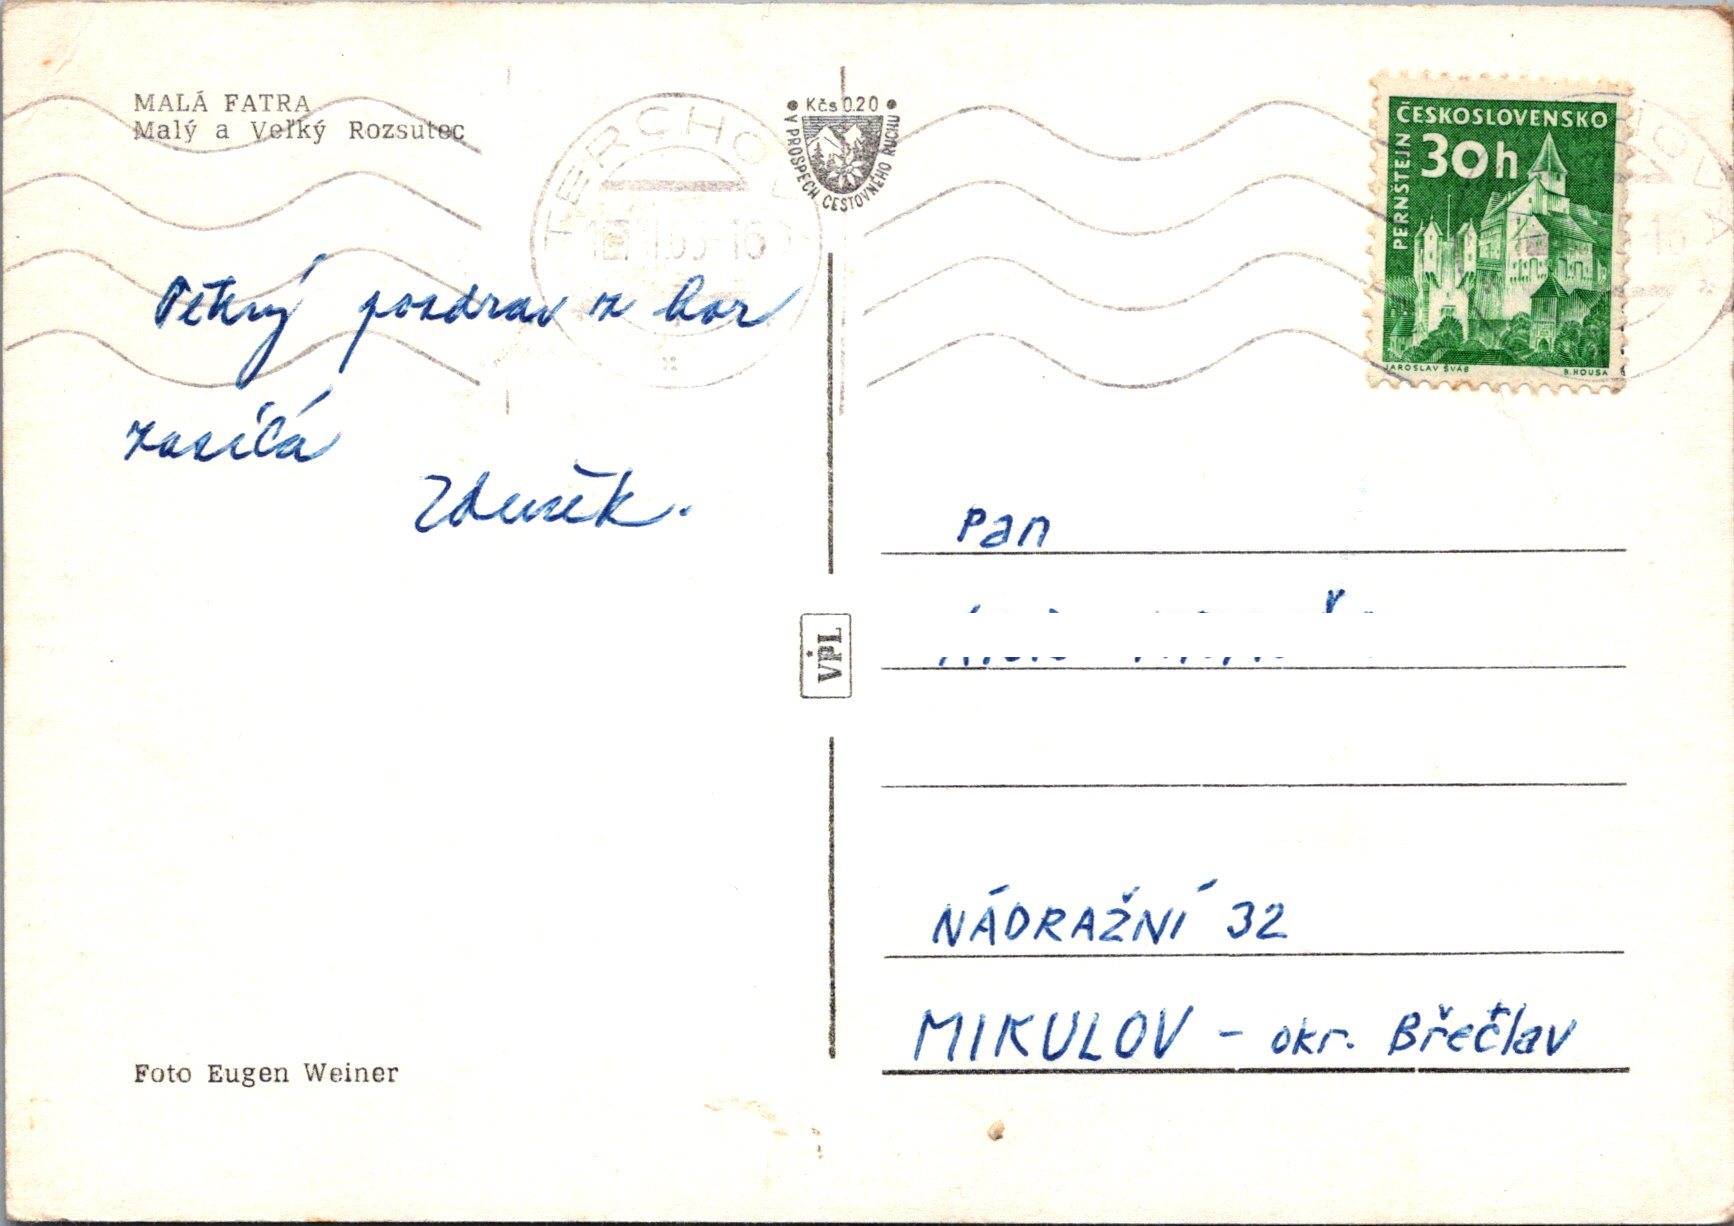 MALÁ FATRA
Malý a Veľký Rozsutec
TERCHOVÁ
Kčs 0.20
V PROSPECH CESTOVNÉHO RUCHU
ČESKOSLOVENSKO
30h
PERNŠTEJN
JAROSLAV ŠVÁB
B. HOUSA
Pěkný pozdrav z hor
zasílá
Zdeněk.
VPL
Pan
NÁDRAŽNÍ 32
MIKULOV - okr. Břečlav
Foto Eugen Weiner